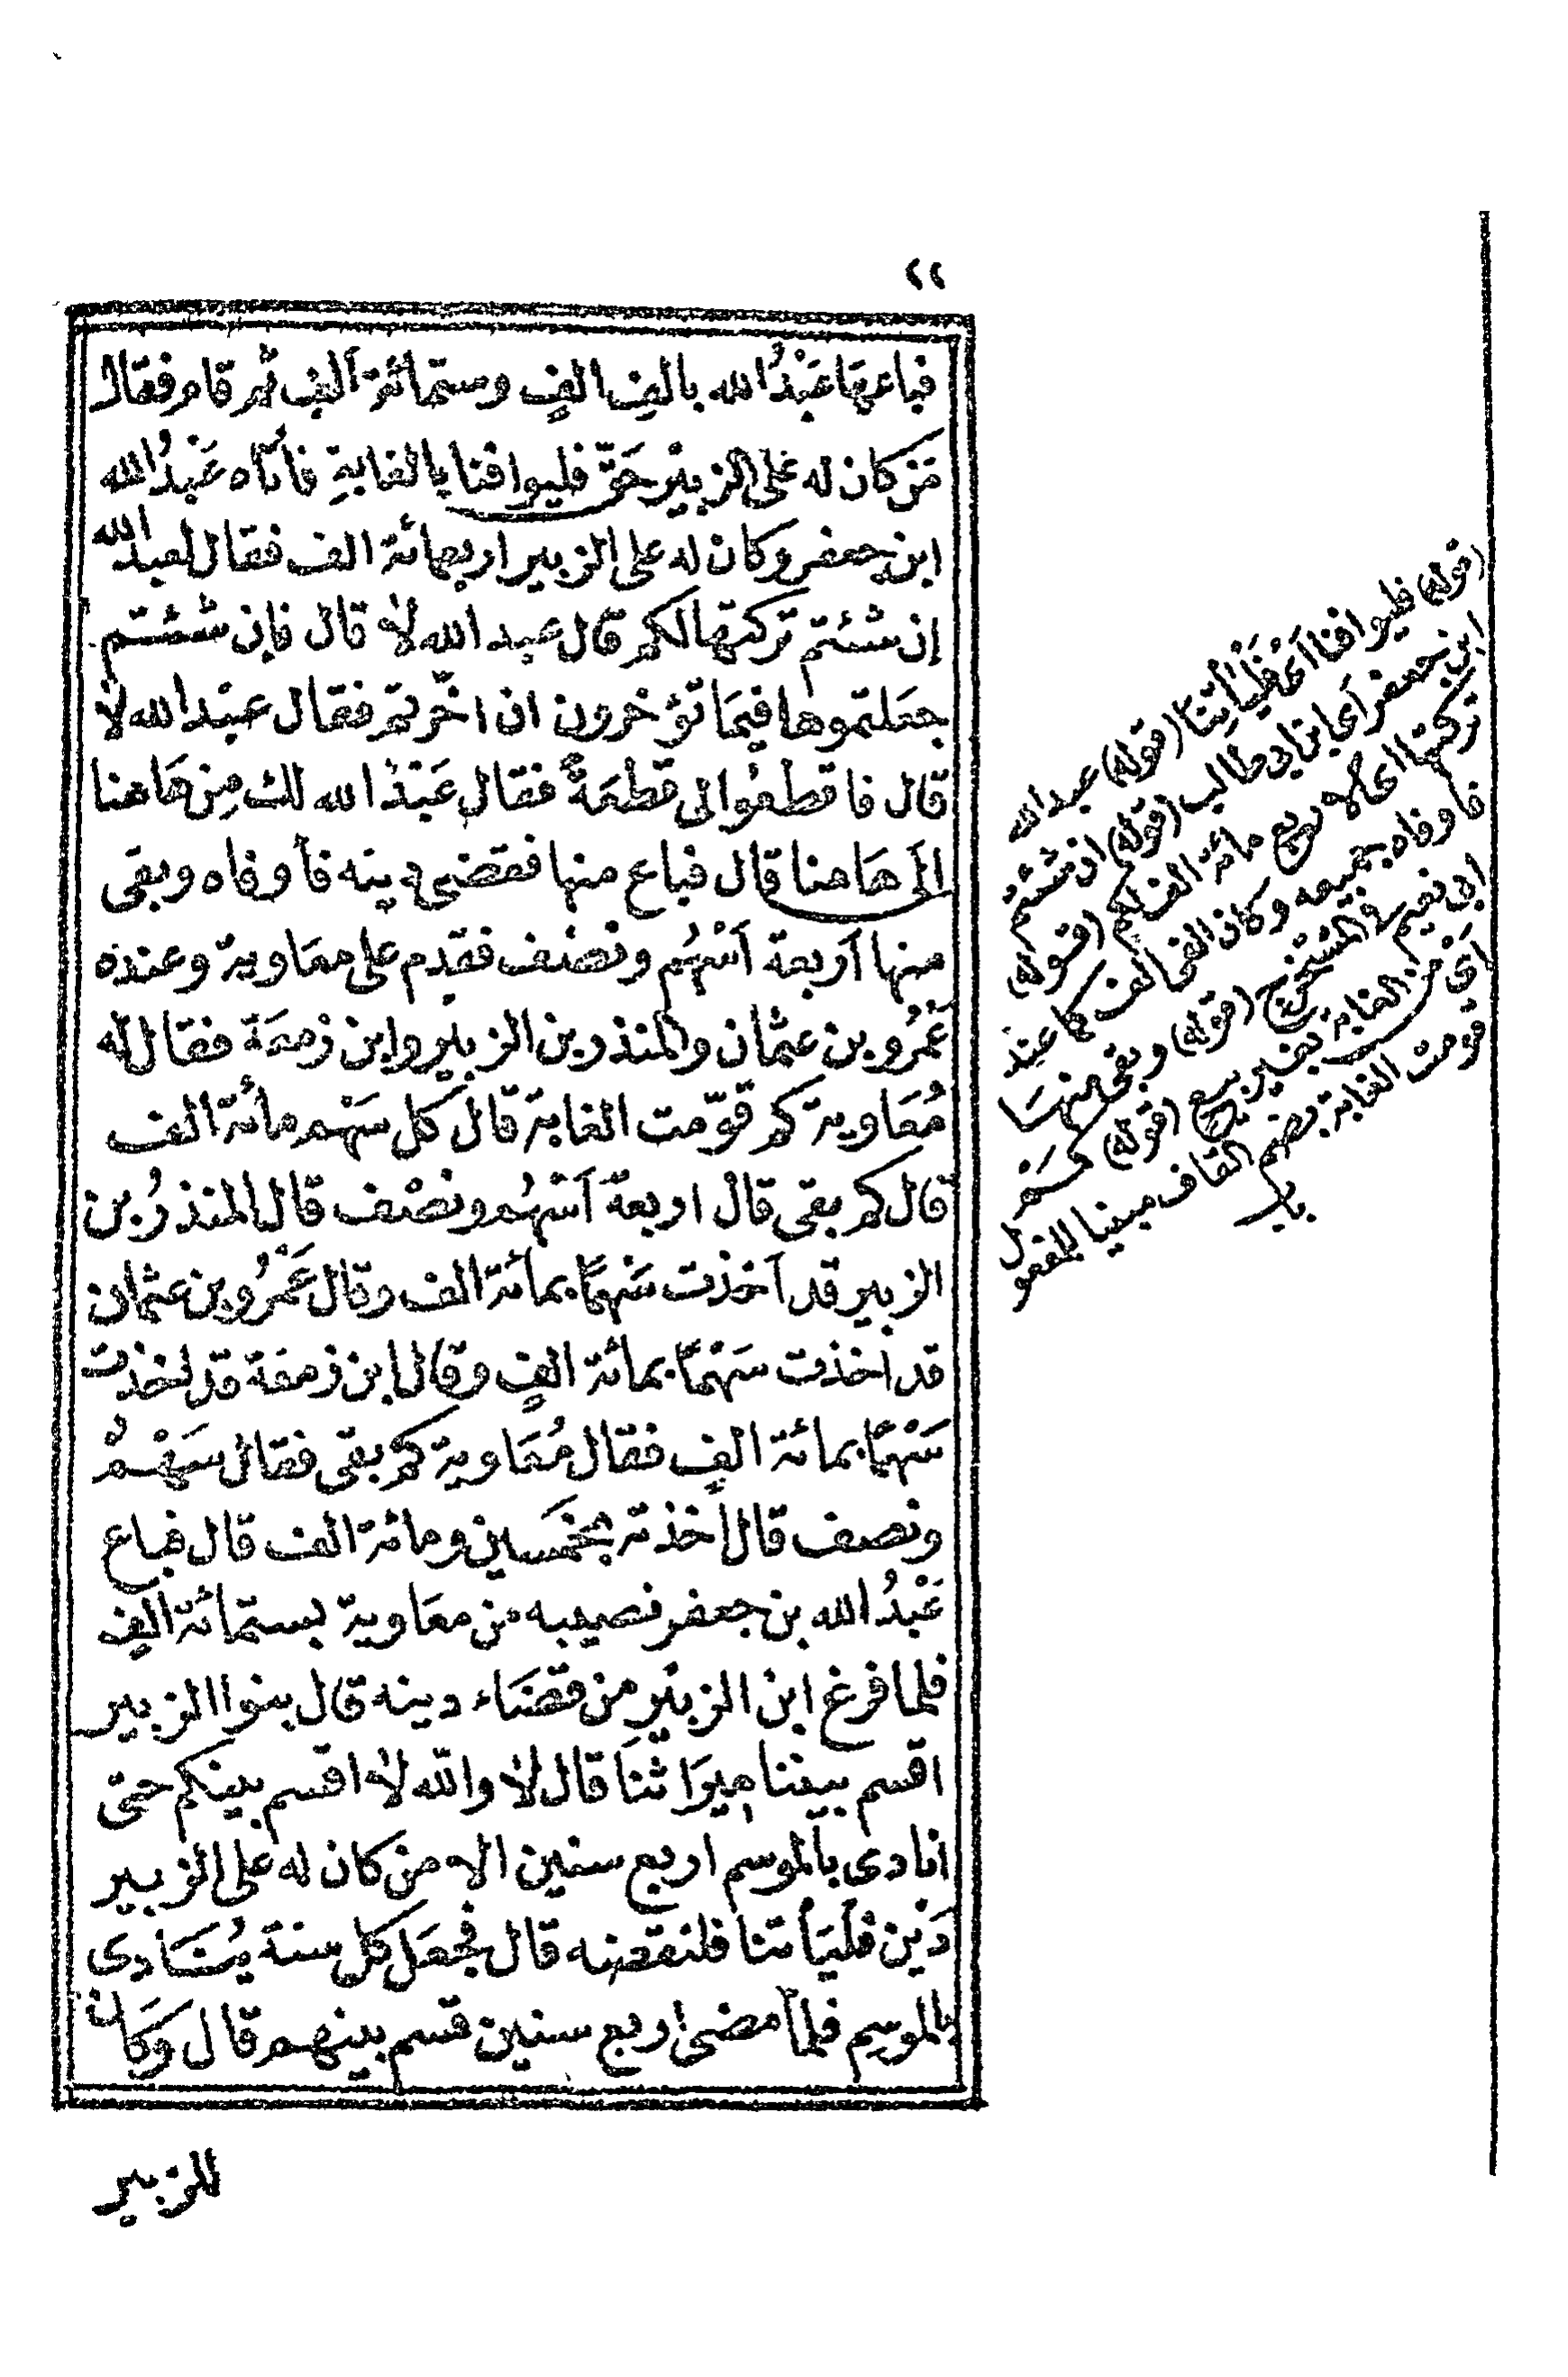 ٢٢
فباعها عَبْدُ الله بالفِ الفٍ وستمائة اَلفٍ ثم قام فقال
مَن كان له على الزبيْر حَقّ فليوافنا بالغابةِ فأتاه عَبْدُ الله
ابن جعفر وكان له على الزبير اربعمائة الف فقال لعبد الله
إن شئتم تركتها لكم قال عبد الله لا قال فإن شئتم
جعلتموها فيمَا تؤخرون ان اخّرتم فقال عبْد الله لا
قال فاقطعُوا لى قطعَةً فقال عَبْدُ الله لك مِن هَاهنا
إلَى هَاهنا قال فباع منها فقضى دينه فأوفاه وبقى
منها اَربعة اَسْهُم ونصْف فقدِم على معَاوية وعنده
عَمْرُو بن عثمان والمنذر بن الزبيْر وابن زمعَة فقال له
مُعَاوية كم قوّمت الغابة قال كل سَهْم مائة الف
قال كم بقى قال اربعة اَسْهُم ونصْف قال المنذرُ بن
الزبير قد اَخذت سَهمًا بمائة الف وقال عَمْرُو بن عثمان
قد أخذت سَهْمًا بمائة الفٍ وقال ابن زمعَة قد اخذت
سَهْمًا بمائة الفٍ فقال مُعَاوية كم بقى فقال سَهْمٌ
ونصف قال أخذته بخمَسين ومائة الف قال فباع
عَبْدُ الله بن جعفر نصيبه من معَاوية بستمائة الفٍ
فلما فرغ ابن الزبيْرِ من قضَاء دينه قال بنوا الزبير
اقسم بيننا مِيرَاثنَا قال لا والله لا اقسم بينكم حتى
انادى بالموسم اربع سنين الا من كان له على الزبير
دَيْن فلْيَأتنا فلنقضه قال فجعَل كل سنة يُنَادى
بالموسِم فلمَّا مضى اربع سنين قسم بينهم قال وَكَان
للزبير
(قوله) فليوافنا أى فَلْيَأتِنَا (قوله) عبد الله
ابن جعفر أى ابن ابى طالب (قوله) ان شئتم
تركتها اى الاربع مائة الف لكم (قوله)
فأوفاه بجميعه وكان الفى الف كما عند
ابى نعيم فى المستخرج (قوله) وبقى منهَا
أى من الغابة بغير بيع (قوله) كَمْ
قومت الغابة بضم القاف مبنيا للمفعول